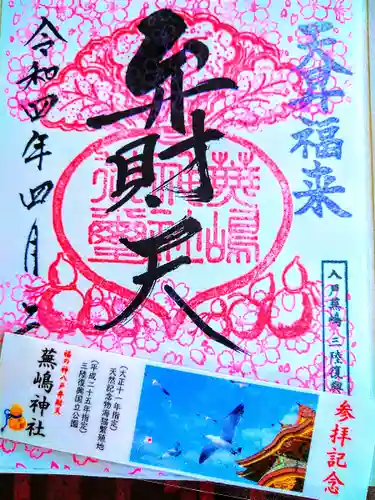 天昇福来
弁財天
令和四年四月二
八戸蕪嶋 三陸復興
蕪嶋神社
福の神八戸弁財天
蕪嶋神社
(大正十一年指定)
天然記念物海猫繁殖地
(平成二十五年指定)
三陸復興国立公園
参拝記念